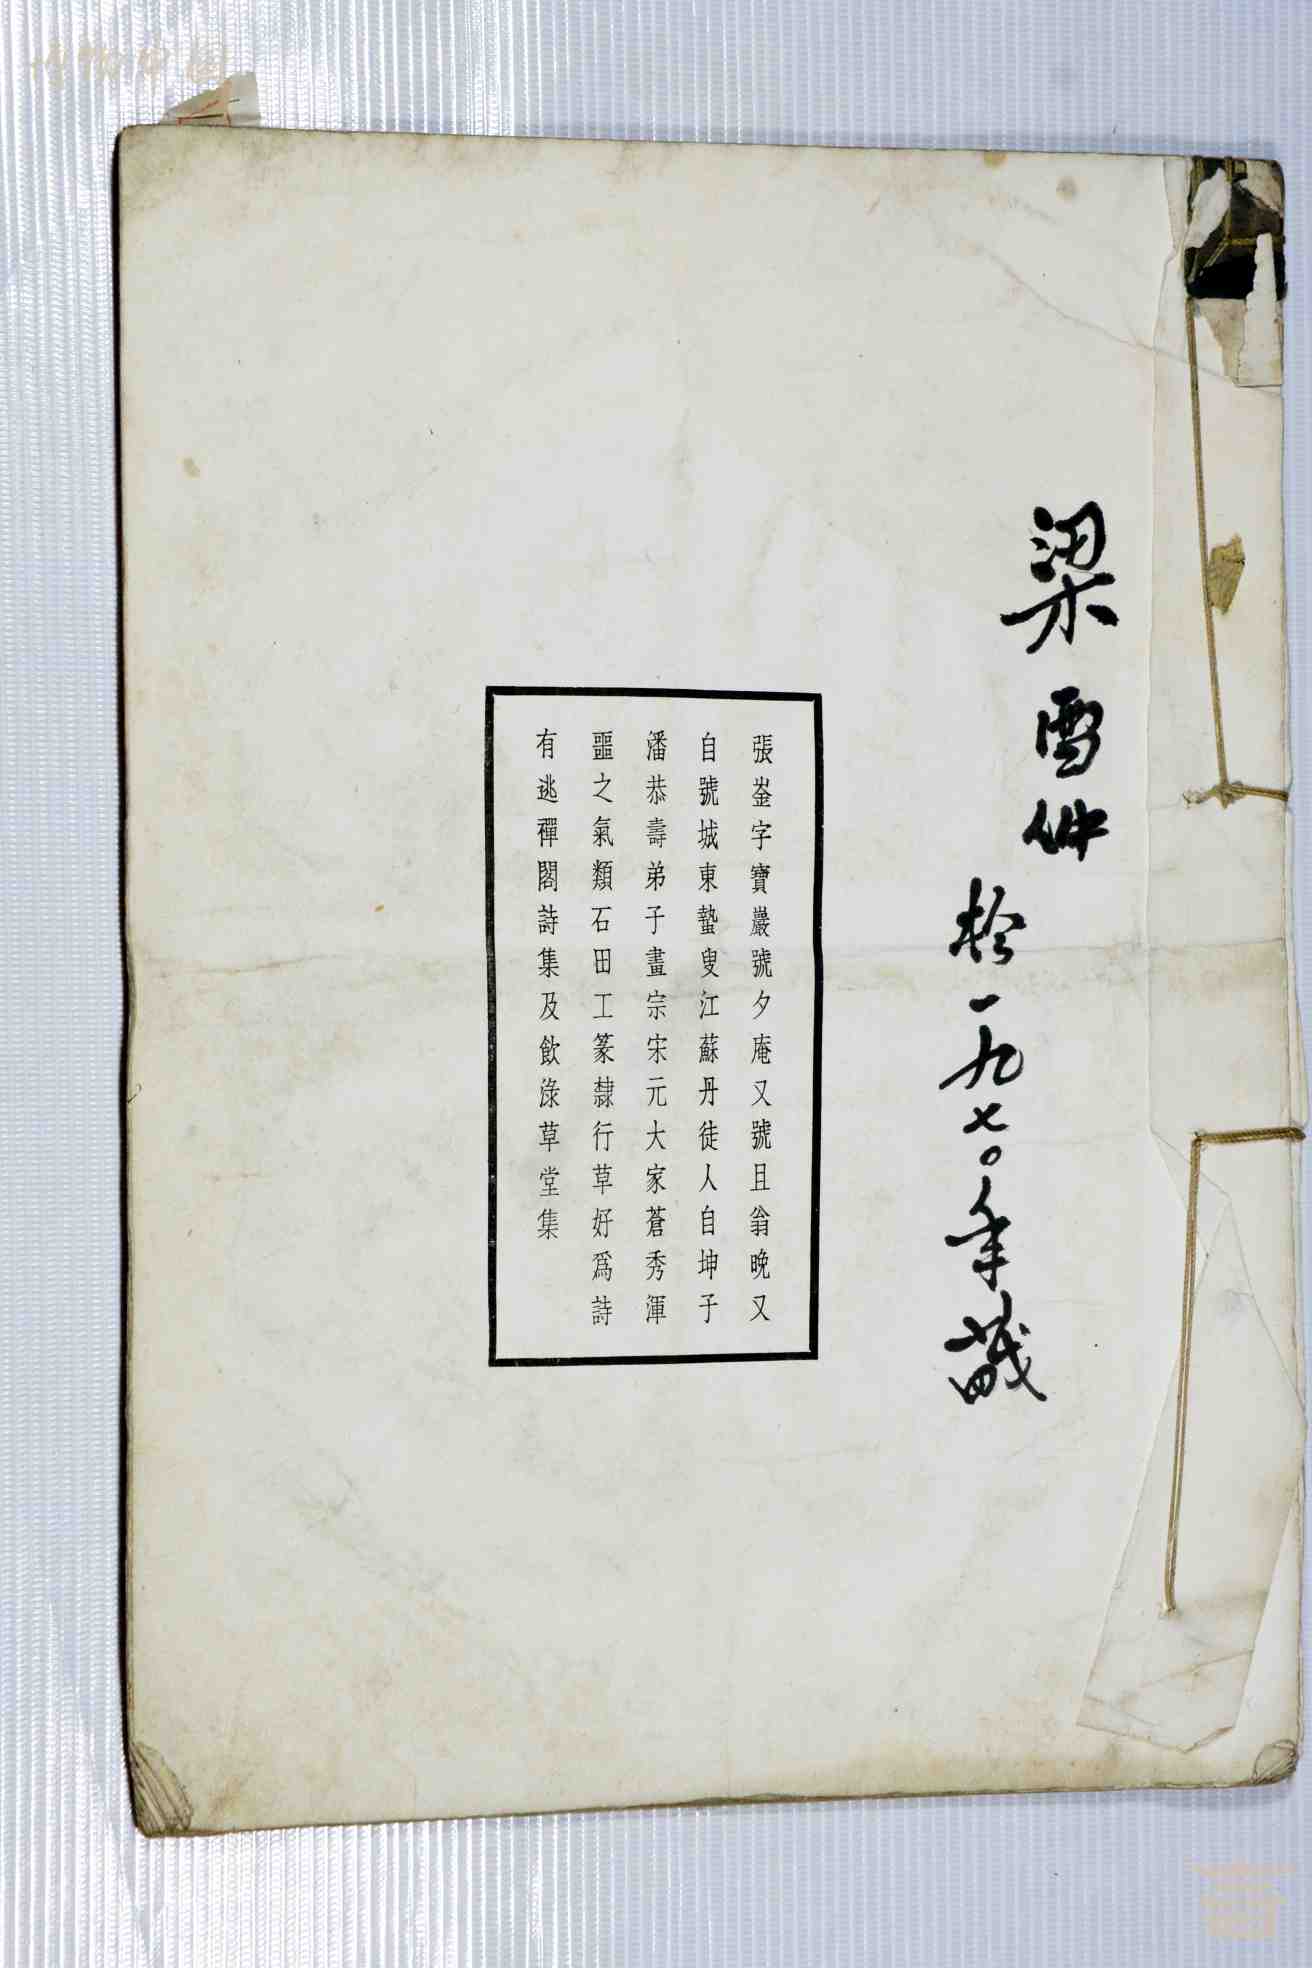 梁雪仲
於一九七〇年識
張崟字寶巖號夕庵又號且翁晚又
自號城東蟄叟江蘇丹徒人自坤子
潘恭壽弟子畫宗宋元大家蒼秀渾
噩之氣類石田工篆隸行草好爲詩
有逃禪閣詩集及飲淥草堂集
博物中國